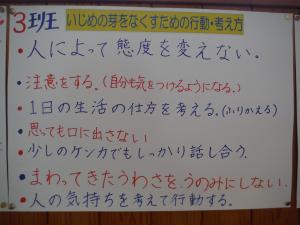 3班 いじめの芽をなくすための行動・考え方
・人によって態度を変えない。
・注意をする。(自分も気をつけるようになる。)
・1日の生活の仕方を考える。(ふりかえる)
・思っても口に出さない
・少しのケンカでもしっかり話し合う。
・まわってきたうわさを、うのみにしない。
・人の気持ちを考えて行動する。